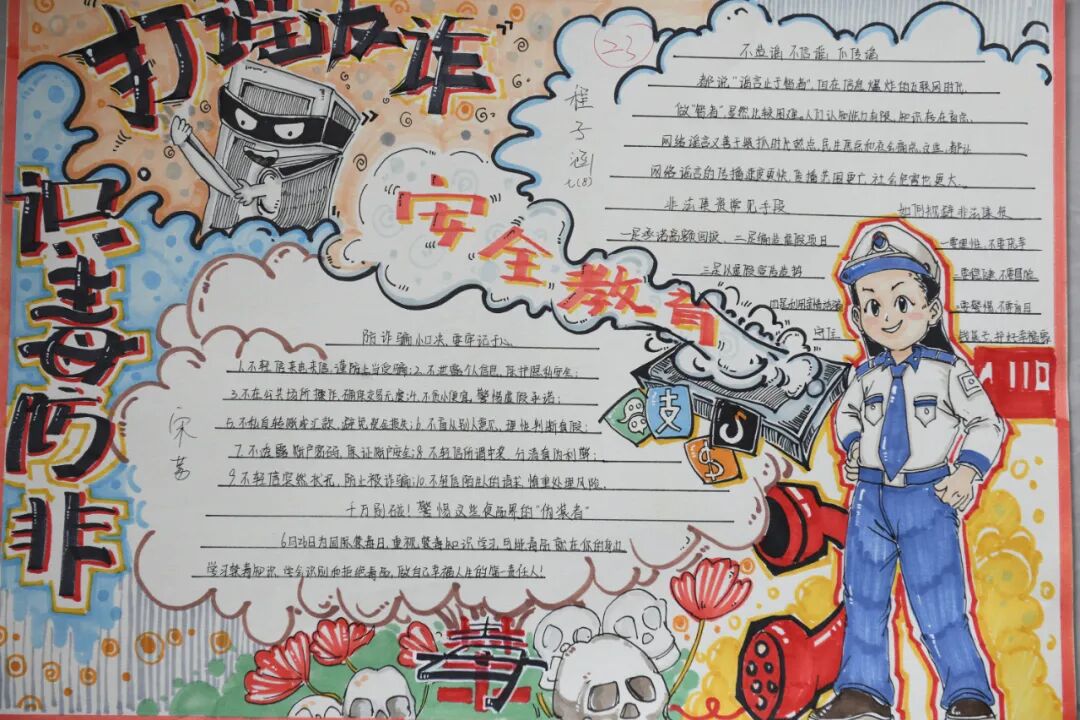 打谣反诈
识毒防非
安全教育
23
程子涵
七(8)
不造谣 不信谣 不传谣
都说"谣言止于智者",但在信息爆炸的互联网时代,
做"智者"虽然比较困难。人们认知能力有限,知识存在盲点,
网络谣言又善于吸引时代热点,民生焦点和社会痛点,这些,都让
网络谣言的传播速度更快,直播范围更广,社会危害也更大。
非法集资常见手段
如何规避非法集资
一是承诺高额回报、二是编造虚假项目
一要理性,不要侥幸
三是以虚假宣传造势
二要稳健,不要冒险
四是利用亲情诱骗
三要警惕,不要盲目
守住
钱袋子,护好幸福家
110
防诈骗小口决,要牢记于心
1.不轻信来电来信,谨防上当受骗;2.不泄露个人信息,保护隐私安全;
3.不在公共场所操作,确保交易无虞;4.不贪小便宜,警惕虚假承诺;
5.不私自转账或汇款,避免资金损失;6.不盲从别人意见,理性判断真假;
7.不透露账户密码,保证账户安全;8.不轻信所谓中奖,分清真伪利弊;
9.不轻信突然状况,防止被诈骗;10.不轻信陌生人的请求,慎重处理风险。
千万别碰!警惕这些食品界的"伪装者"
6月26日为国际禁毒日,重视禁毒知识学习,
学习禁毒知识,学会识别和拒绝毒品,做自己幸福人生的第一责任人!
宋茜
支
$
禁毒